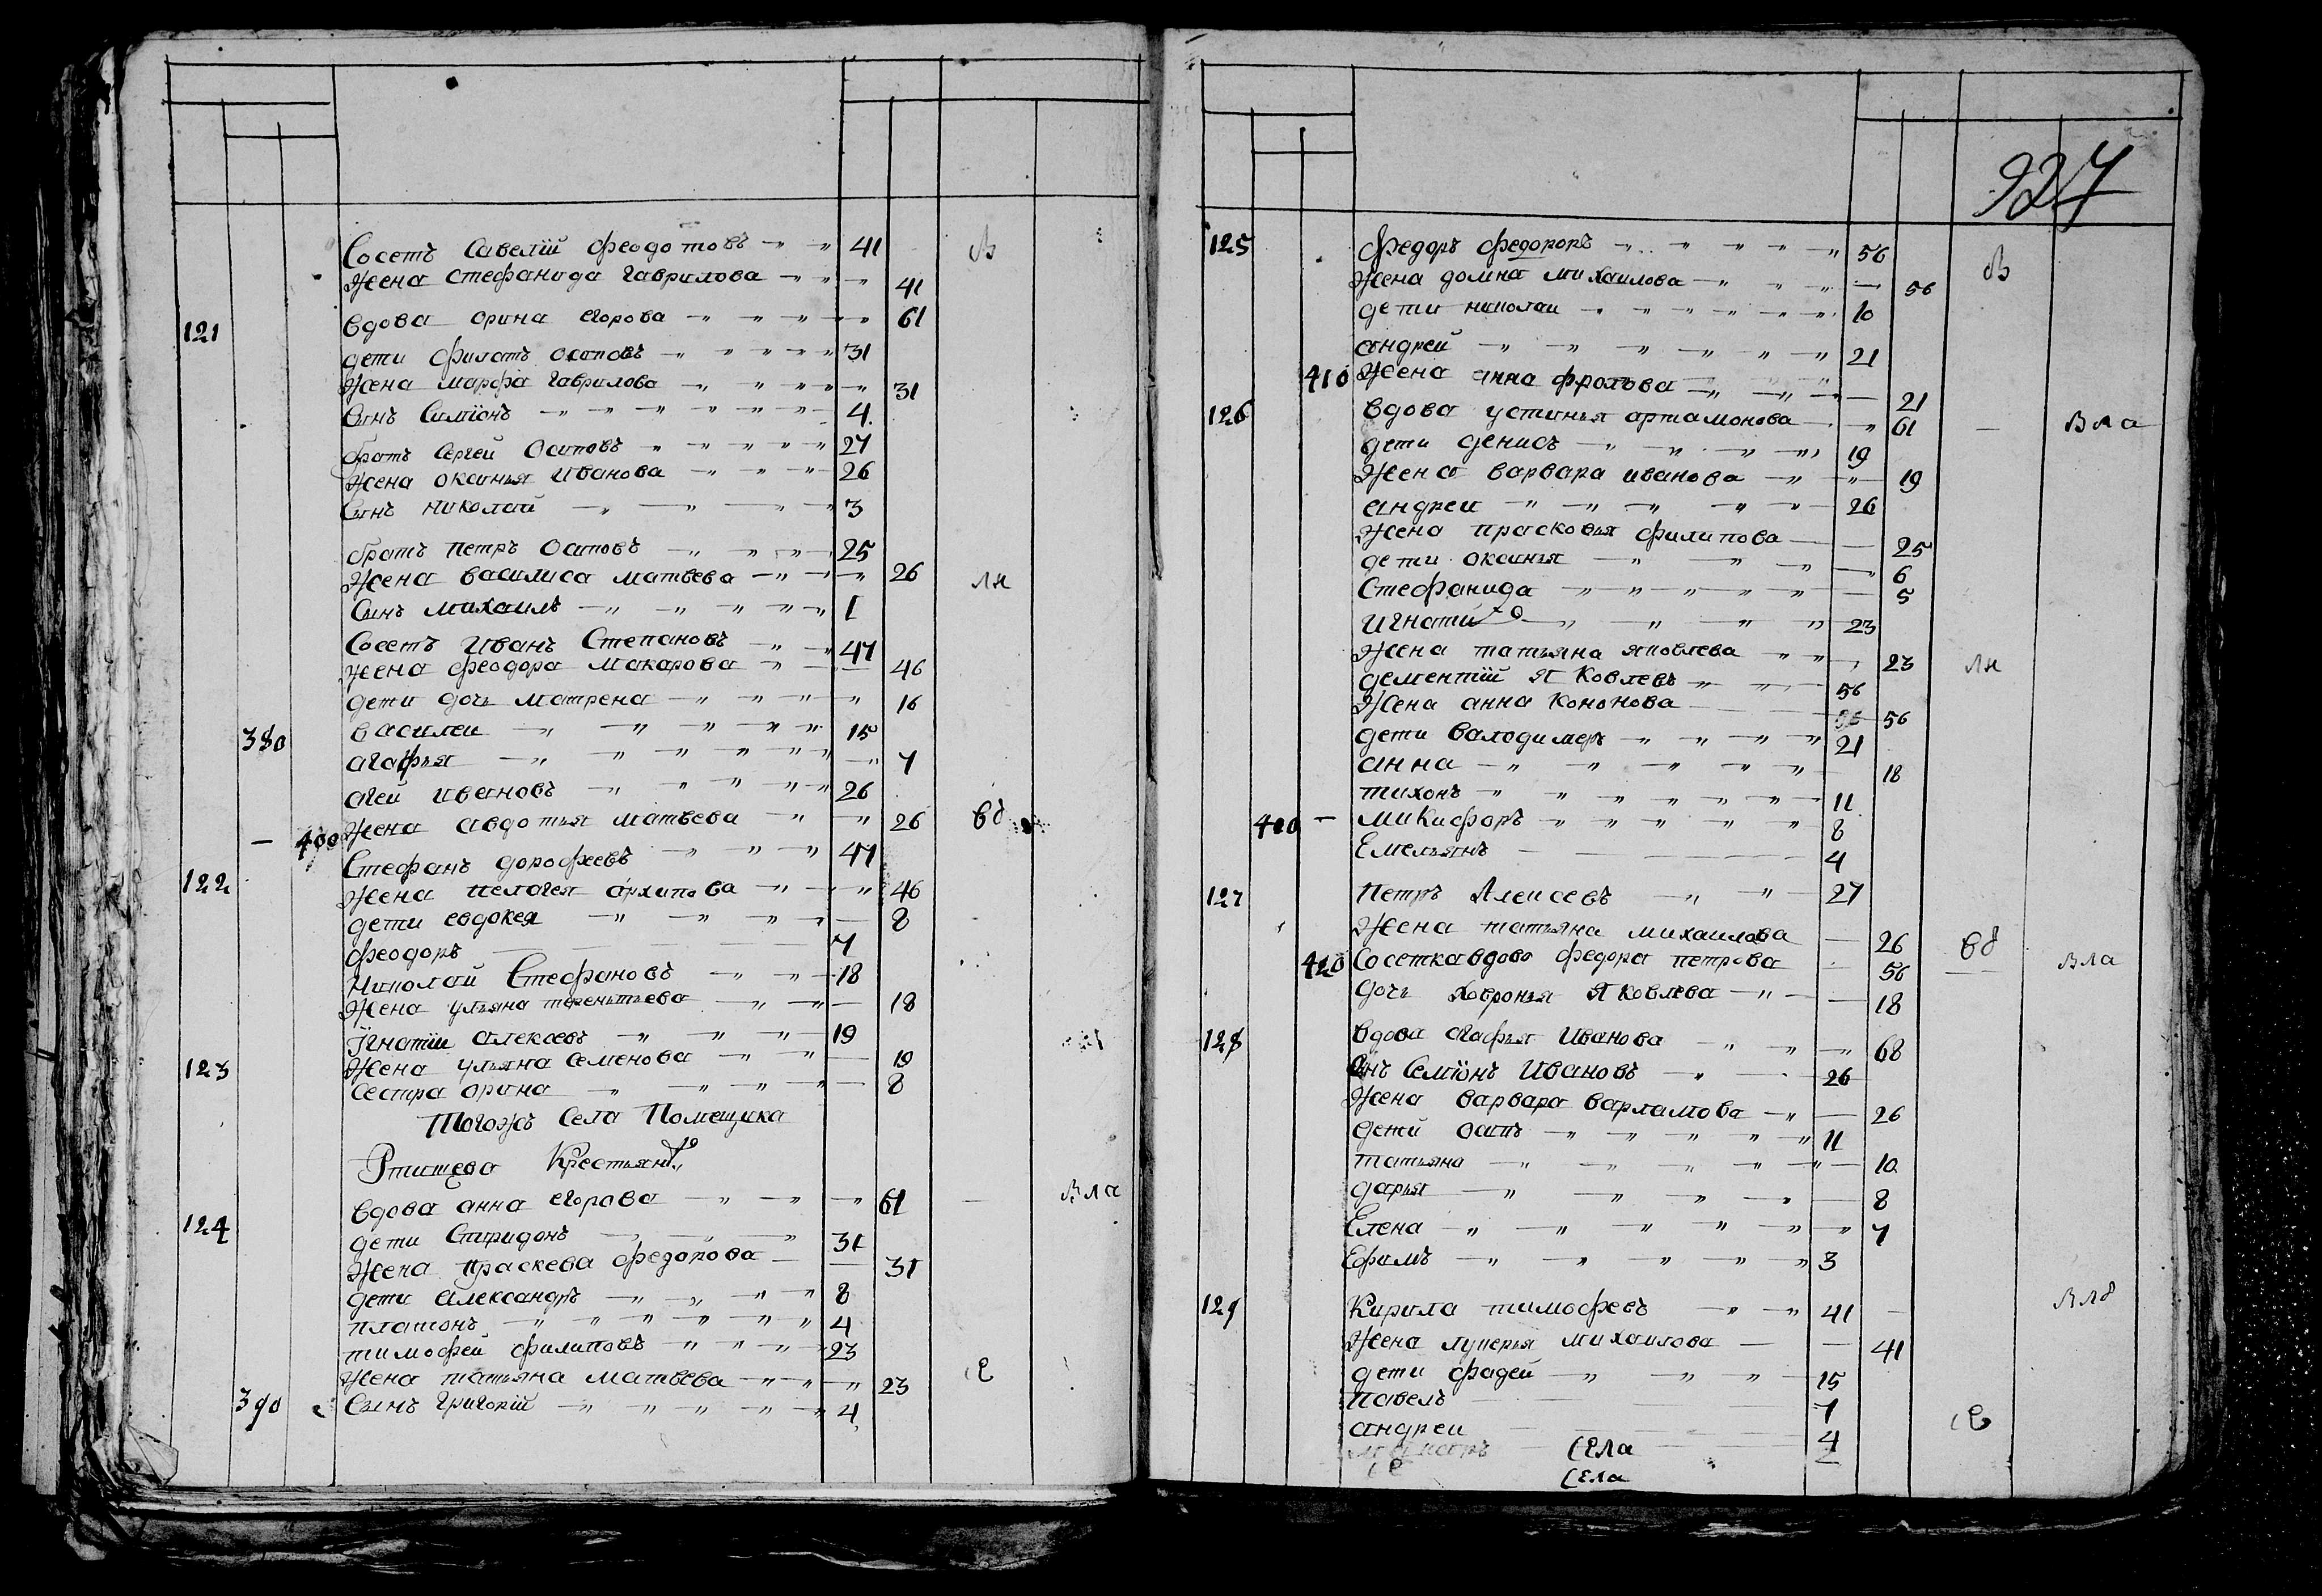 Сосетъ Савелїй Феодотовъ 41 в
Жена Стефанида Гаврилова 41
121 Вдова Орина Егорова 61
дети Филатъ Осиповъ 31
Жена Марфа Гаврилова 31
Сынъ Симїонъ 4
братъ Сергей Осиповъ 27
Жена Оксинья Иванова 26
Сынъ Николай 3
братъ Петръ Осиповъ 25
Жена Василиса Матвеева 26 лн
Сынъ Михаилъ 1
Сосетъ Иванъ Степановъ 47
Жена Феодора Макарова 46
дети дочь Матрена 16
380 Василеи 15
Агафья 7
Агей Ивановъ 26
400 Жена Авдотья Матвеева 26 вд
122 Стефанъ Дорофеевъ 47
Жена Пелагея Архипова 46
дети Евдокея 8
Феодоръ 7
Николай Стефановъ 18
Жена Ульяна Терентьева 18
123 Їгнатїи Алексеевъ 19
Жена Ульяна Семенова 19
Сестра Орина 8
Тогожъ Села Помещика
Ртищева Крестьянъ
124 Вдова Анна Егорова 61 — Вла
дети Спиридонъ 31
Жена Праскева Федорова 31
дети Александръ 8
Платонъ 4
Тимофей Филиповъ 23
Жена Татьяна Матвеева 23 се
390 Сынъ Григорїй 4
927
125 Федоръ Федоровъ 56 в
Жена Домна Михаилова 56
дети Николаи 10
Андрей 21
410 Жена Анна Фролова 21
126 Вдова Устинья Артамонова 61 — Вла
дети Денисъ 19
Жена Варвара Иванова 19
Андреи 26
Жена Прасковья Филипова 25
дети Оксинья 6
Стефанида 5
Игнатїй 23
Жена Татьяна Яковлева 23 лн
Дементїй Яковлевъ 56
Жена Анна Кононова 56
дети Валодимеръ 21
Анна 18
Тихонъ 11
400 — Микифоръ 8
Емельянъ 4
127 Петръ Алексеевъ 27
Жена Татьяна Михаилова 26 вд
420 Сосетка вдова Федора Петрова 56 — Вла
Дочь Ховронья Яковлева 18
128 Вдова Агафья Иванова 68
Сынъ Семїонъ Ивановъ 26
Жена Варвара Варламова 26
детей Осипъ 11
Татьяна 10
Дарья 8
Елена 7
Ефимъ 3
129 Кирила Тимофеевъ 41 — Влд
Жена Лукерья Михаилова 41
дети Фадей 15
Павелъ 7
Андреи 4 се
Села
Села